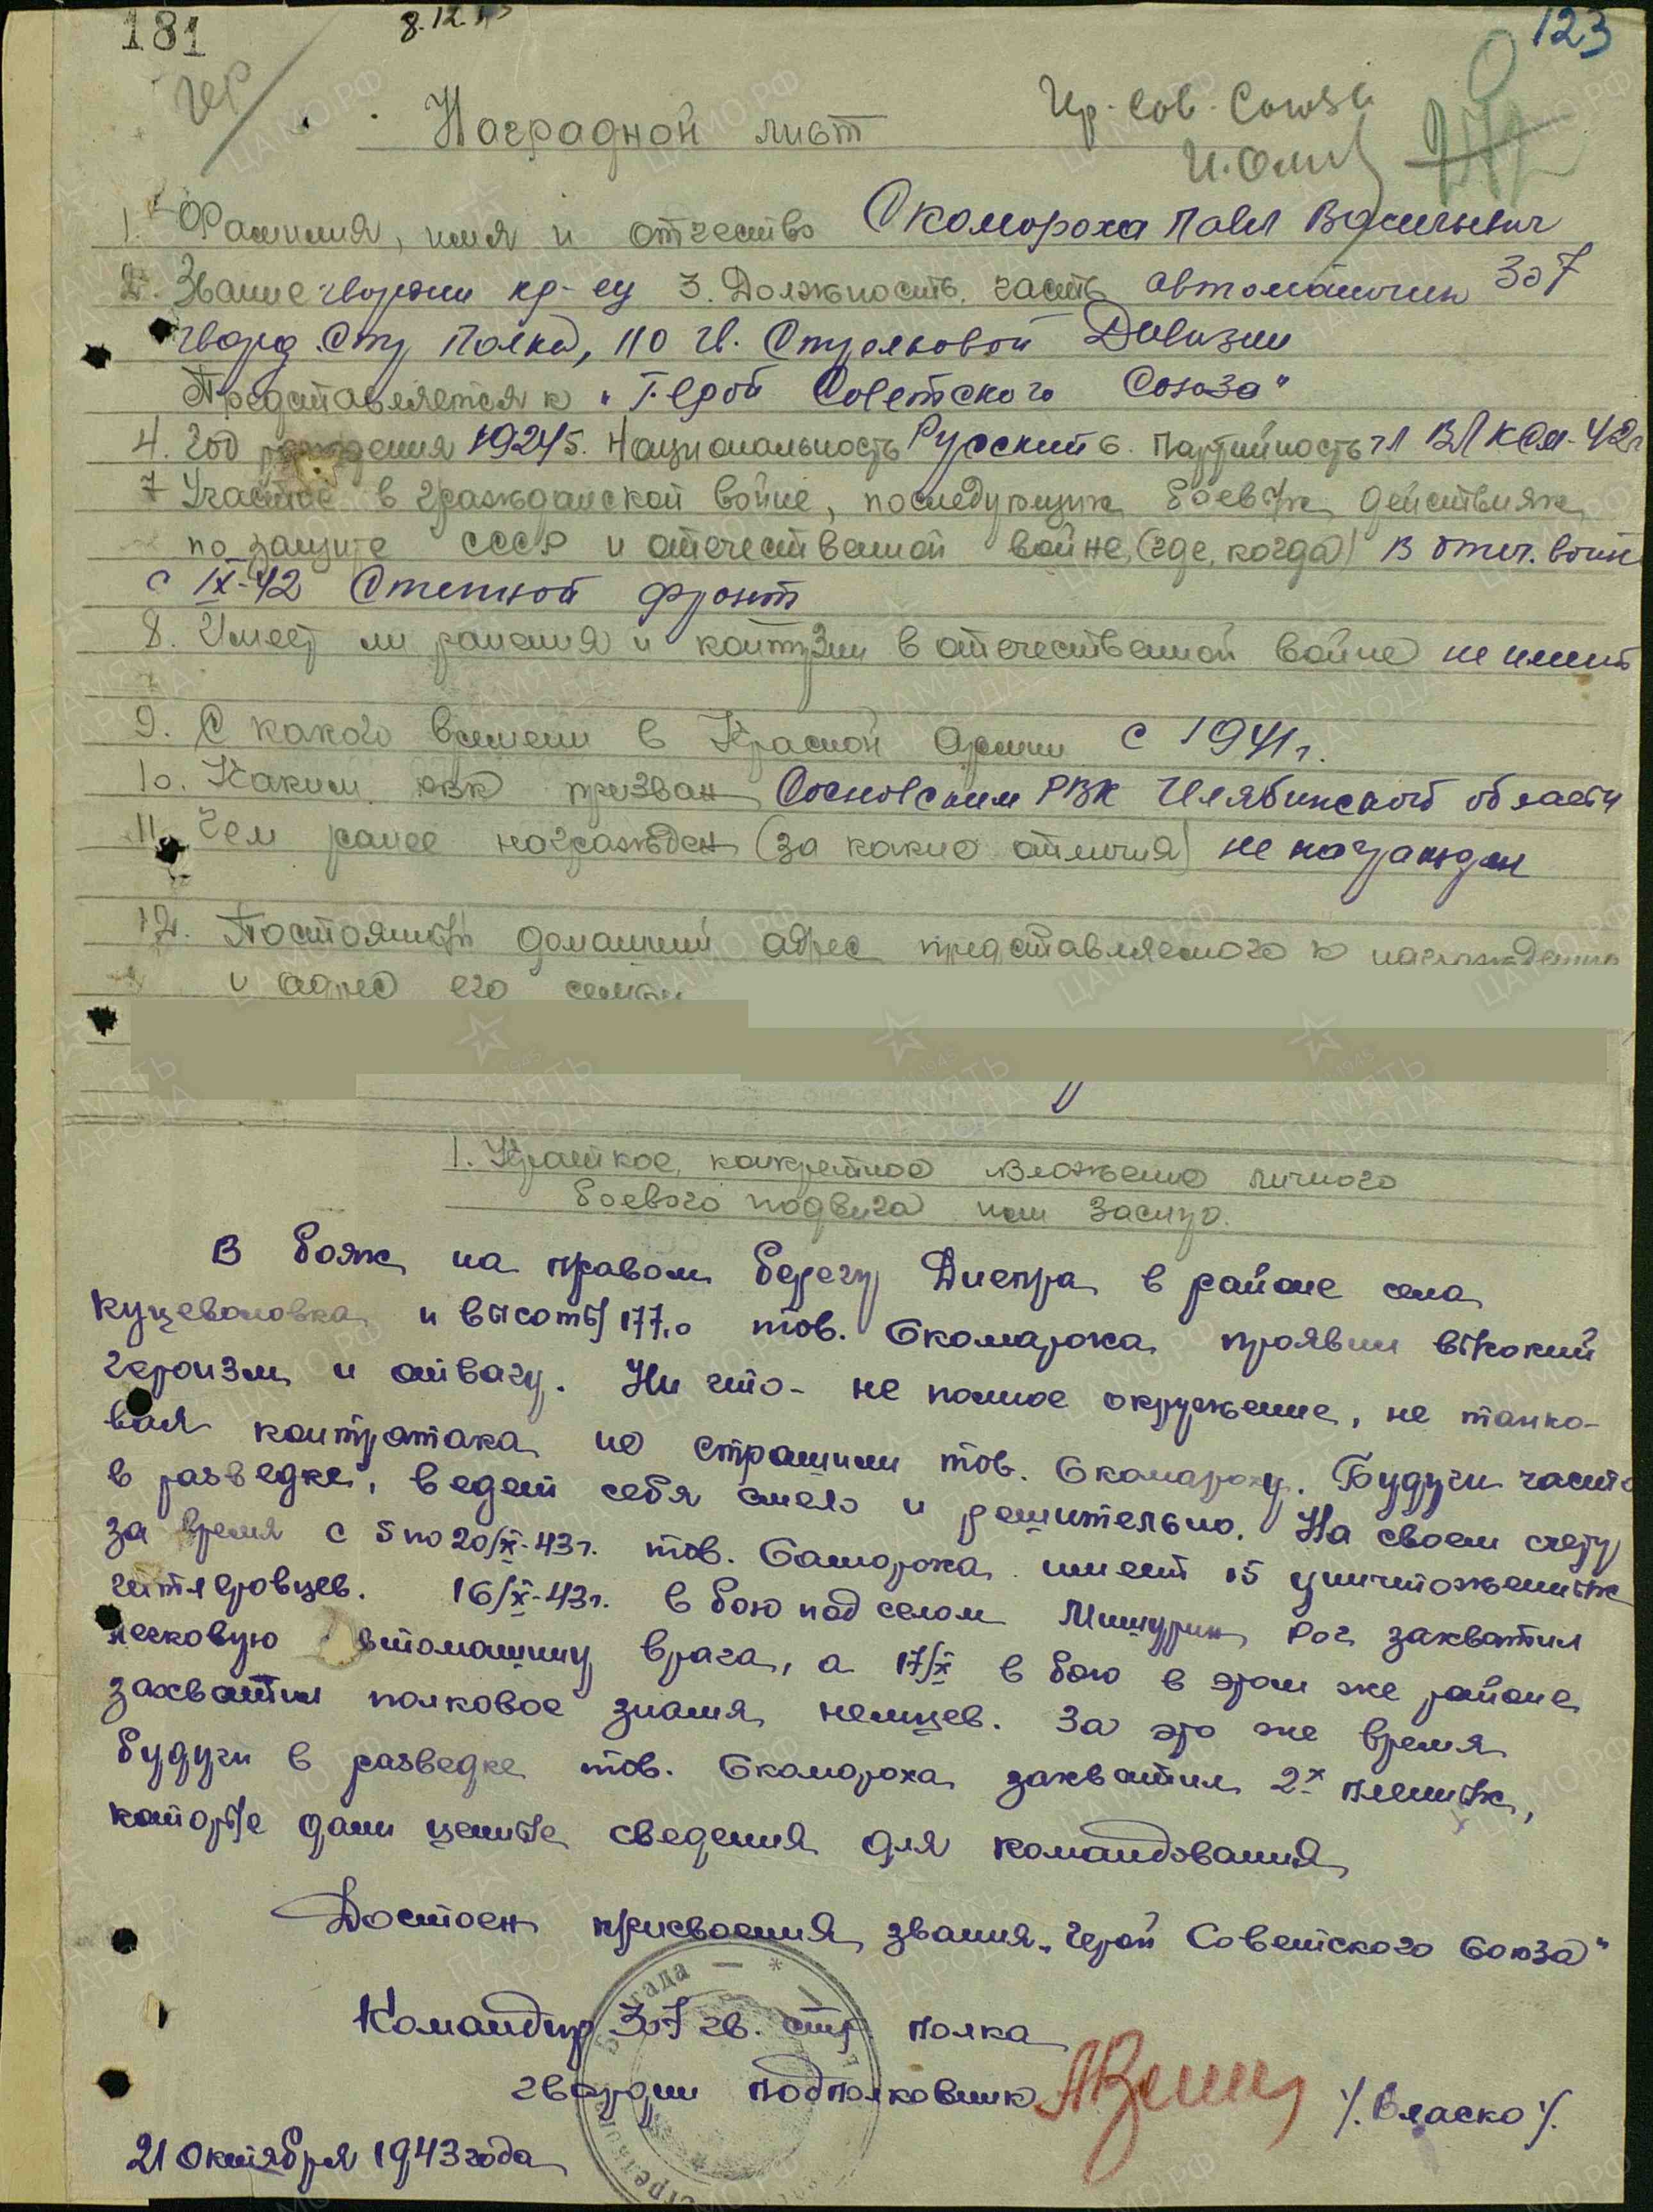 181
8.12.43
123
Гер
Гер. Сов. Союза
Наградной лист
1. Фамилия, имя и отчество Скомороха Павел Васильевич
2. Звание гвардии кр-ец 3. Должность, часть автоматчик 307
гвард. Стр Полка, 110 гв. Стрелковой Дивизии
Представляется к "Герой Советского Союза"
4. Год рождения 1924 5. Национальность Русский 6. Партийность чл ВЛКСМ-42г
7 Участие в гражданской войне, последующих боевых действиях
по защите СССР и отечественной войне (где, когда) в отеч. войне
с IX-42 Степной фронт
8. Имеет ли ранения и контузии в отечественной войне не имеет
9. С какого времени в Красной Армии с 1941 г.
10. Каким РВК призван Сосновским РВК Челябинской области
11. Чем ранее награжден (за какие отличия) не награжден
12. Постоянный домашний адрес представляемого к награждению
и адрес его семьи
1. Краткое, конкретное изложение личного
боевого подвига или заслуг.
В боях на правом берегу Днепра в районе села
Куцеволовка и высоты 177,0 тов. Скомароха проявил высокий
героизм и отвагу. Ни что- не полное окружение, не танко-
вая контратака не страшили тов. Скомароху. Будучи часто
в разведке, ведет себя смело и решительно. На своем счету
за время с 5 по 20/X-43г. тов. Скомороха имеет 15 уничтоженных
гитлеровцев. 16/X-43г. в бою под селом Мишурин Рог захватил
легковую автомашину врага, а 17/X в бою в этом же районе
захватил полковое знамя немцев. За это же время
будучи в разведке тов. Скомороха захватил 2х пленных,
которые дали ценные сведения для командования
Достоен присвоения звания "Герой Советского Союза"
Командир 307 гв. стр полка
гвардии подполковник /. Власко /.
21 Октября 1943 года